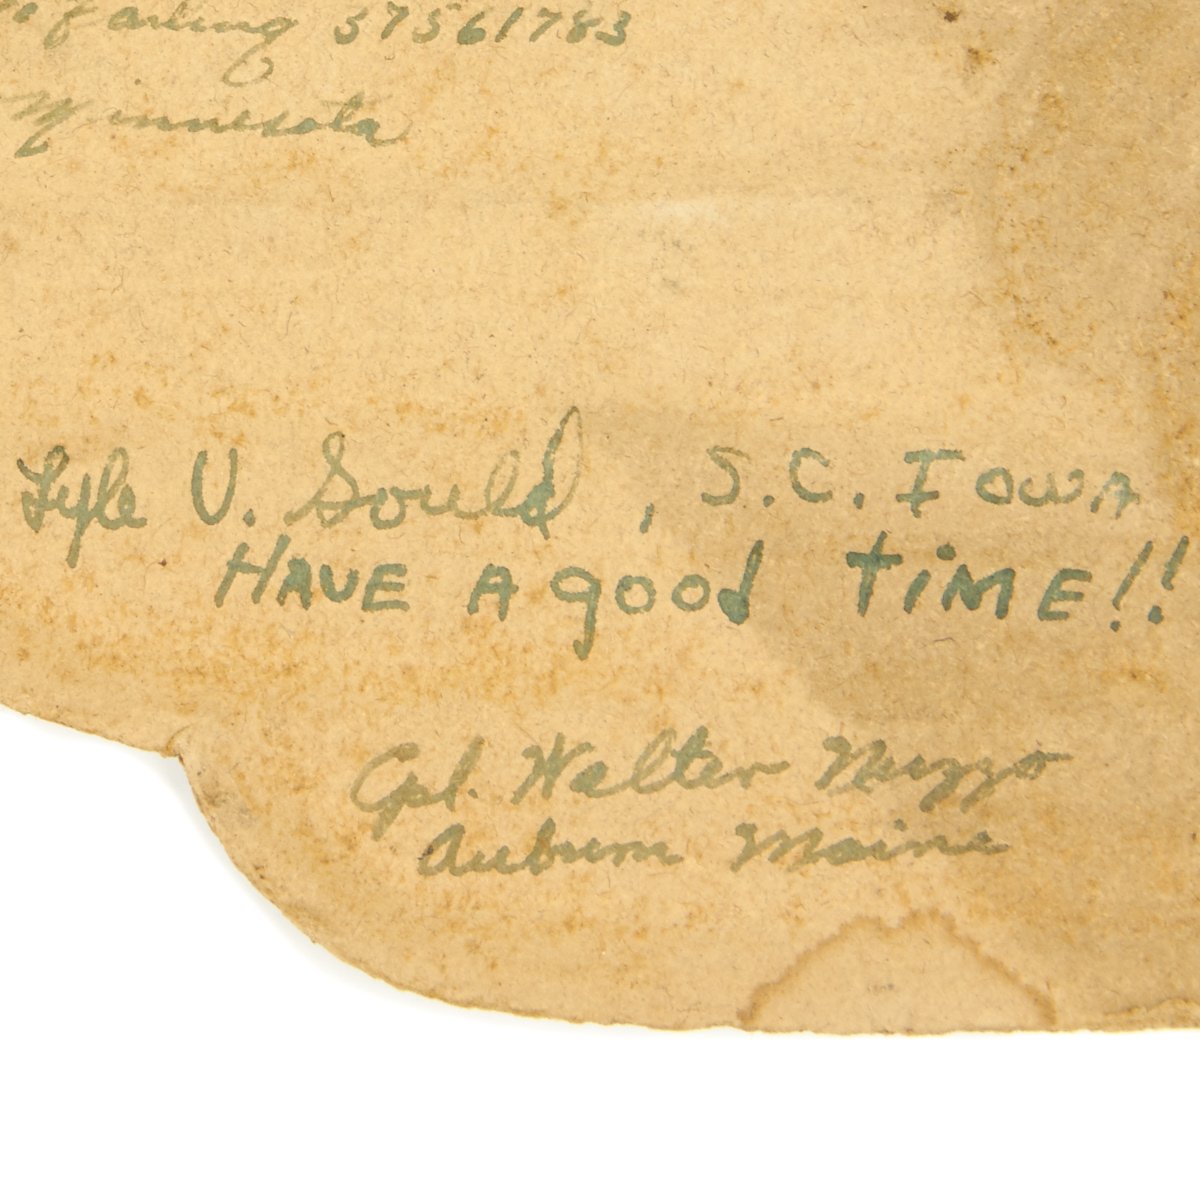 57561783
Minnesota
Lyle V. Gould, S.C. Iowa
HAVE A good TiME!!
Cpl. Walter Nuzzo
Auburn Maine